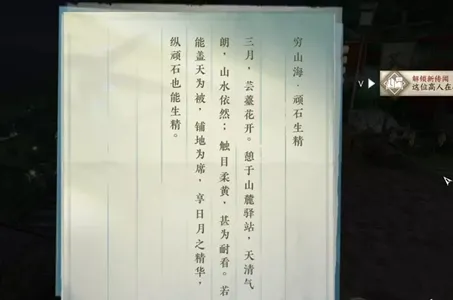 穷山海·顽石生精
三月，芸薹花开。憩于山麓驿站，天清气
朗，山水依然；触目柔黄，甚为耐看。若
能盖天为被，铺地为席，享日月之精华，
纵顽石也能生精。
V
解锁新传闻
这位高人在